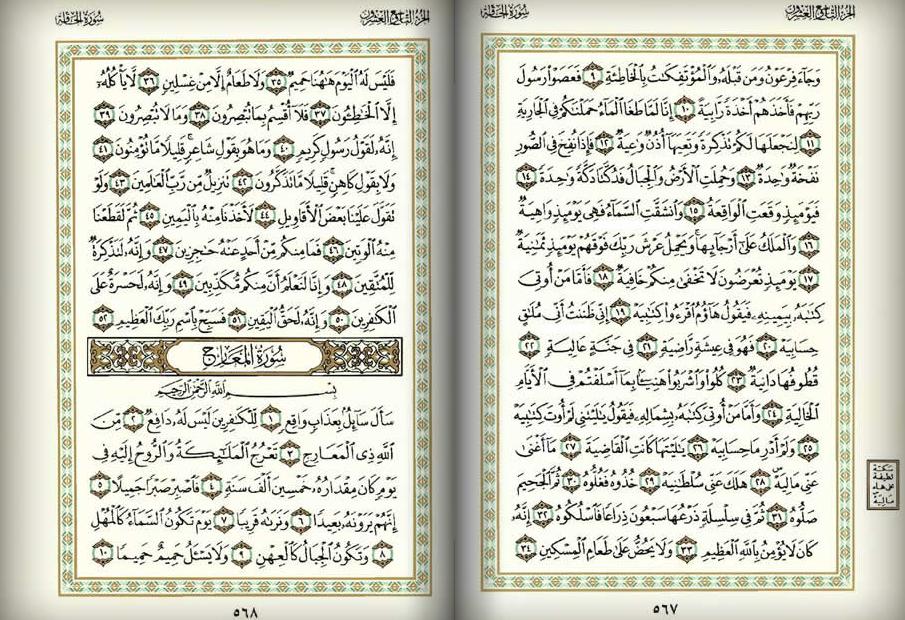 الجزء التاسع والعشرون
سورة الحاقة
وَجَآءَ فِرْعَوْنُ وَمَن قَبْلَهُۥ وَٱلْمُؤْتَفِكَٰتُ بِٱلْخَاطِئَةِ ٩ فَعَصَوْا۟ رَسُولَ
رَبِّهِمْ فَأَخَذَهُمْ أَخْذَةً رَّابِيَةً ١٠ إِنَّا لَمَّا طَغَا ٱلْمَآءُ حَمَلْنَٰكُمْ فِى ٱلْجَارِيَةِ
١١ لِنَجْعَلَهَا لَكُمْ تَذْكِرَةً وَتَعِيَهَآ أُذُنٌ وَٰعِيَةٌ ١٢ فَإِذَا نُفِخَ فِى ٱلصُّورِ
نَفْخَةٌ وَٰحِدَةٌ ١٣ وَحُمِلَتِ ٱلْأَرْضُ وَٱلْجِبَالُ فَدُكَّتَا دَكَّةً وَٰحِدَةً ١٤
فَيَوْمَئِذٍ وَقَعَتِ ٱلْوَاقِعَةُ ١٥ وَٱنشَقَّتِ ٱلسَّمَآءُ فَهِىَ يَوْمَئِذٍ وَاهِيَةٌ
١٦ وَٱلْمَلَكُ عَلَىٰٓ أَرْجَآئِهَا وَيَحْمِلُ عَرْشَ رَبِّكَ فَوْقَهُمْ يَوْمَئِذٍ ثَمَٰنِيَةٌ
١٧ يَوْمَئِذٍ تُعْرَضُونَ لَا تَخْفَىٰ مِنكُمْ خَافِيَةٌ ١٨ فَأَمَّا مَنْ أُوتِىَ
كِتَٰبَهُۥ بِيَمِينِهِۦ فَيَقُولُ هَآؤُمُ ٱقْرَءُوا۟ كِتَٰبِيَهْ ١٩ إِنِّى ظَنَنتُ أَنِّى مُلَٰقٍ
حِسَابِيَهْ ٢٠ فَهُوَ فِى عِيشَةٍ رَّاضِيَةٍ ٢١ فِى جَنَّةٍ عَالِيَةٍ ٢٢
قُطُوفُهَا دَانِيَةٌ ٢٣ كُلُوا۟ وَٱشْرَبُوا۟ هَنِيٓـًٔۢا بِمَآ أَسْلَفْتُمْ فِى ٱلْأَيَّامِ
ٱلْخَالِيَةِ ٢٤ وَأَمَّا مَنْ أُوتِىَ كِتَٰبَهُۥ بِشِمَالِهِۦ فَيَقُولُ يَٰلَيْتَنِى لَمْ أُوتَ كِتَٰبِيَهْ
٢٥ وَلَمْ أَدْرِ مَا حِسَابِيَهْ ٢٦ يَٰلَيْتَهَا كَانَتِ ٱلْقَاضِيَةَ ٢٧ مَآ أَغْنَىٰ
عَنِّى مَالِيَهْ ٢٨ هَلَكَ عَنِّى سُلْطَٰنِيَهْ ٢٩ خُذُوهُ فَغُلُّوهُ ٣٠ ثُمَّ ٱلْجَحِيمَ
صَلُّوهُ ٣١ ثُمَّ فِى سِلْسِلَةٍ ذَرْعُهَا سَبْعُونَ ذِرَاعًا فَٱسْلُكُوهُ ٣٢ إِنَّهُۥ
كَانَ لَا يُؤْمِنُ بِٱللَّهِ ٱلْعَظِيمِ ٣٣ وَلَا يَحُضُّ عَلَىٰ طَعَامِ ٱلْمِسْكِينِ ٣٤
سكتة
لطيفة
على هاء
مالية
٥٦٧
الجزء التاسع والعشرون
سورة الحاقة
فَلَيْسَ لَهُ ٱلْيَوْمَ هَٰهُنَا حَمِيمٌ ٣٥ وَلَا طَعَامٌ إِلَّا مِنْ غِسْلِينٍ ٣٦ لَّا يَأْكُلُهُۥٓ
إِلَّا ٱلْخَٰطِـُٔونَ ٣٧ فَلَآ أُقْسِمُ بِمَا تُبْصِرُونَ ٣٨ وَمَا لَا تُبْصِرُونَ ٣٩
إِنَّهُۥ لَقَوْلُ رَسُولٍ كَرِيمٍ ٤٠ وَمَا هُوَ بِقَوْلِ شَاعِرٍ قَلِيلًا مَّا تُؤْمِنُونَ ٤١
وَلَا بِقَوْلِ كَاهِنٍ قَلِيلًا مَّا تَذَكَّرُونَ ٤٢ تَنزِيلٌ مِّن رَّبِّ ٱلْعَٰلَمِينَ ٤٣ وَلَوْ
تَقَوَّلَ عَلَيْنَا بَعْضَ ٱلْأَقَاوِيلِ ٤٤ لَأَخَذْنَا مِنْهُ بِٱلْيَمِينِ ٤٥ ثُمَّ لَقَطَعْنَا
مِنْهُ ٱلْوَتِينَ ٤٦ فَمَا مِنكُم مِّنْ أَحَدٍ عَنْهُ حَٰجِزِينَ ٤٧ وَإِنَّهُۥ لَتَذْكِرَةٌ
لِّلْمُتَّقِينَ ٤٨ وَإِنَّا لَنَعْلَمُ أَنَّ مِنكُم مُّكَذِّبِينَ ٤٩ وَإِنَّهُۥ لَحَسْرَةٌ عَلَى
ٱلْكَٰفِرِينَ ٥٠ وَإِنَّهُۥ لَحَقُّ ٱلْيَقِينِ ٥١ فَسَبِّحْ بِٱسْمِ رَبِّكَ ٱلْعَظِيمِ ٥٢
سُورَةُ المَعَارِجِ
بِسْمِ ٱللَّهِ ٱلرَّحْمَٰنِ ٱلرَّحِيمِ
سَأَلَ سَآئِلٌۢ بِعَذَابٍ وَاقِعٍ ١ لِّلْكَٰفِرِينَ لَيْسَ لَهُۥ دَافِعٌ ٢ مِّنَ
ٱللَّهِ ذِى ٱلْمَعَارِجِ ٣ تَعْرُجُ ٱلْمَلَٰٓئِكَةُ وَٱلرُّوحُ إِلَيْهِ فِى
يَوْمٍ كَانَ مِقْدَارُهُۥ خَمْسِينَ أَلْفَ سَنَةٍ ٤ فَٱصْبِرْ صَبْرًا جَمِيلًا ٥
إِنَّهُمْ يَرَوْنَهُۥ بَعِيدًا ٦ وَنَرَىٰهُ قَرِيبًا ٧ يَوْمَ تَكُونُ ٱلسَّمَآءُ كَٱلْمُهْلِ
٨ وَتَكُونُ ٱلْجِبَالُ كَٱلْعِهْنِ ٩ وَلَا يَسْـَٔلُ حَمِيمٌ حَمِيمًا ١٠
٥٦٨